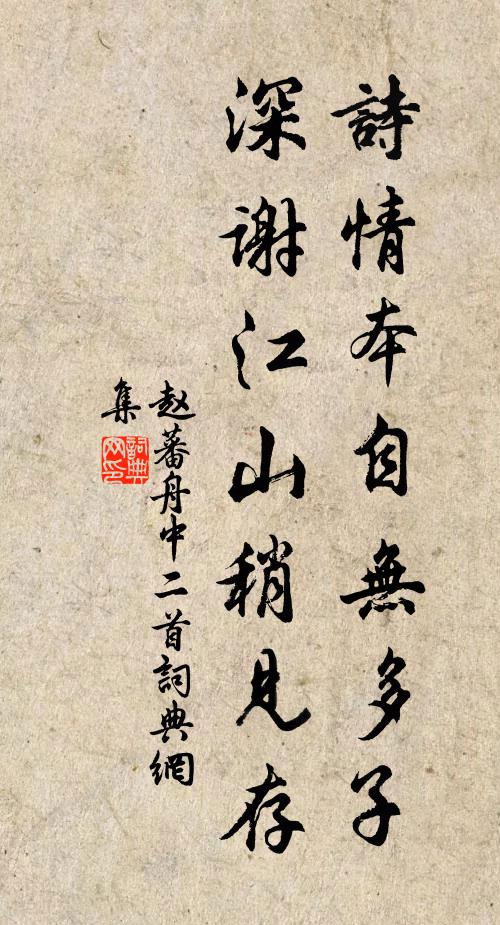 詩情本自無多子
深謝江山稍見存
赵蕃舟中二首詞典網
集
詞典网印